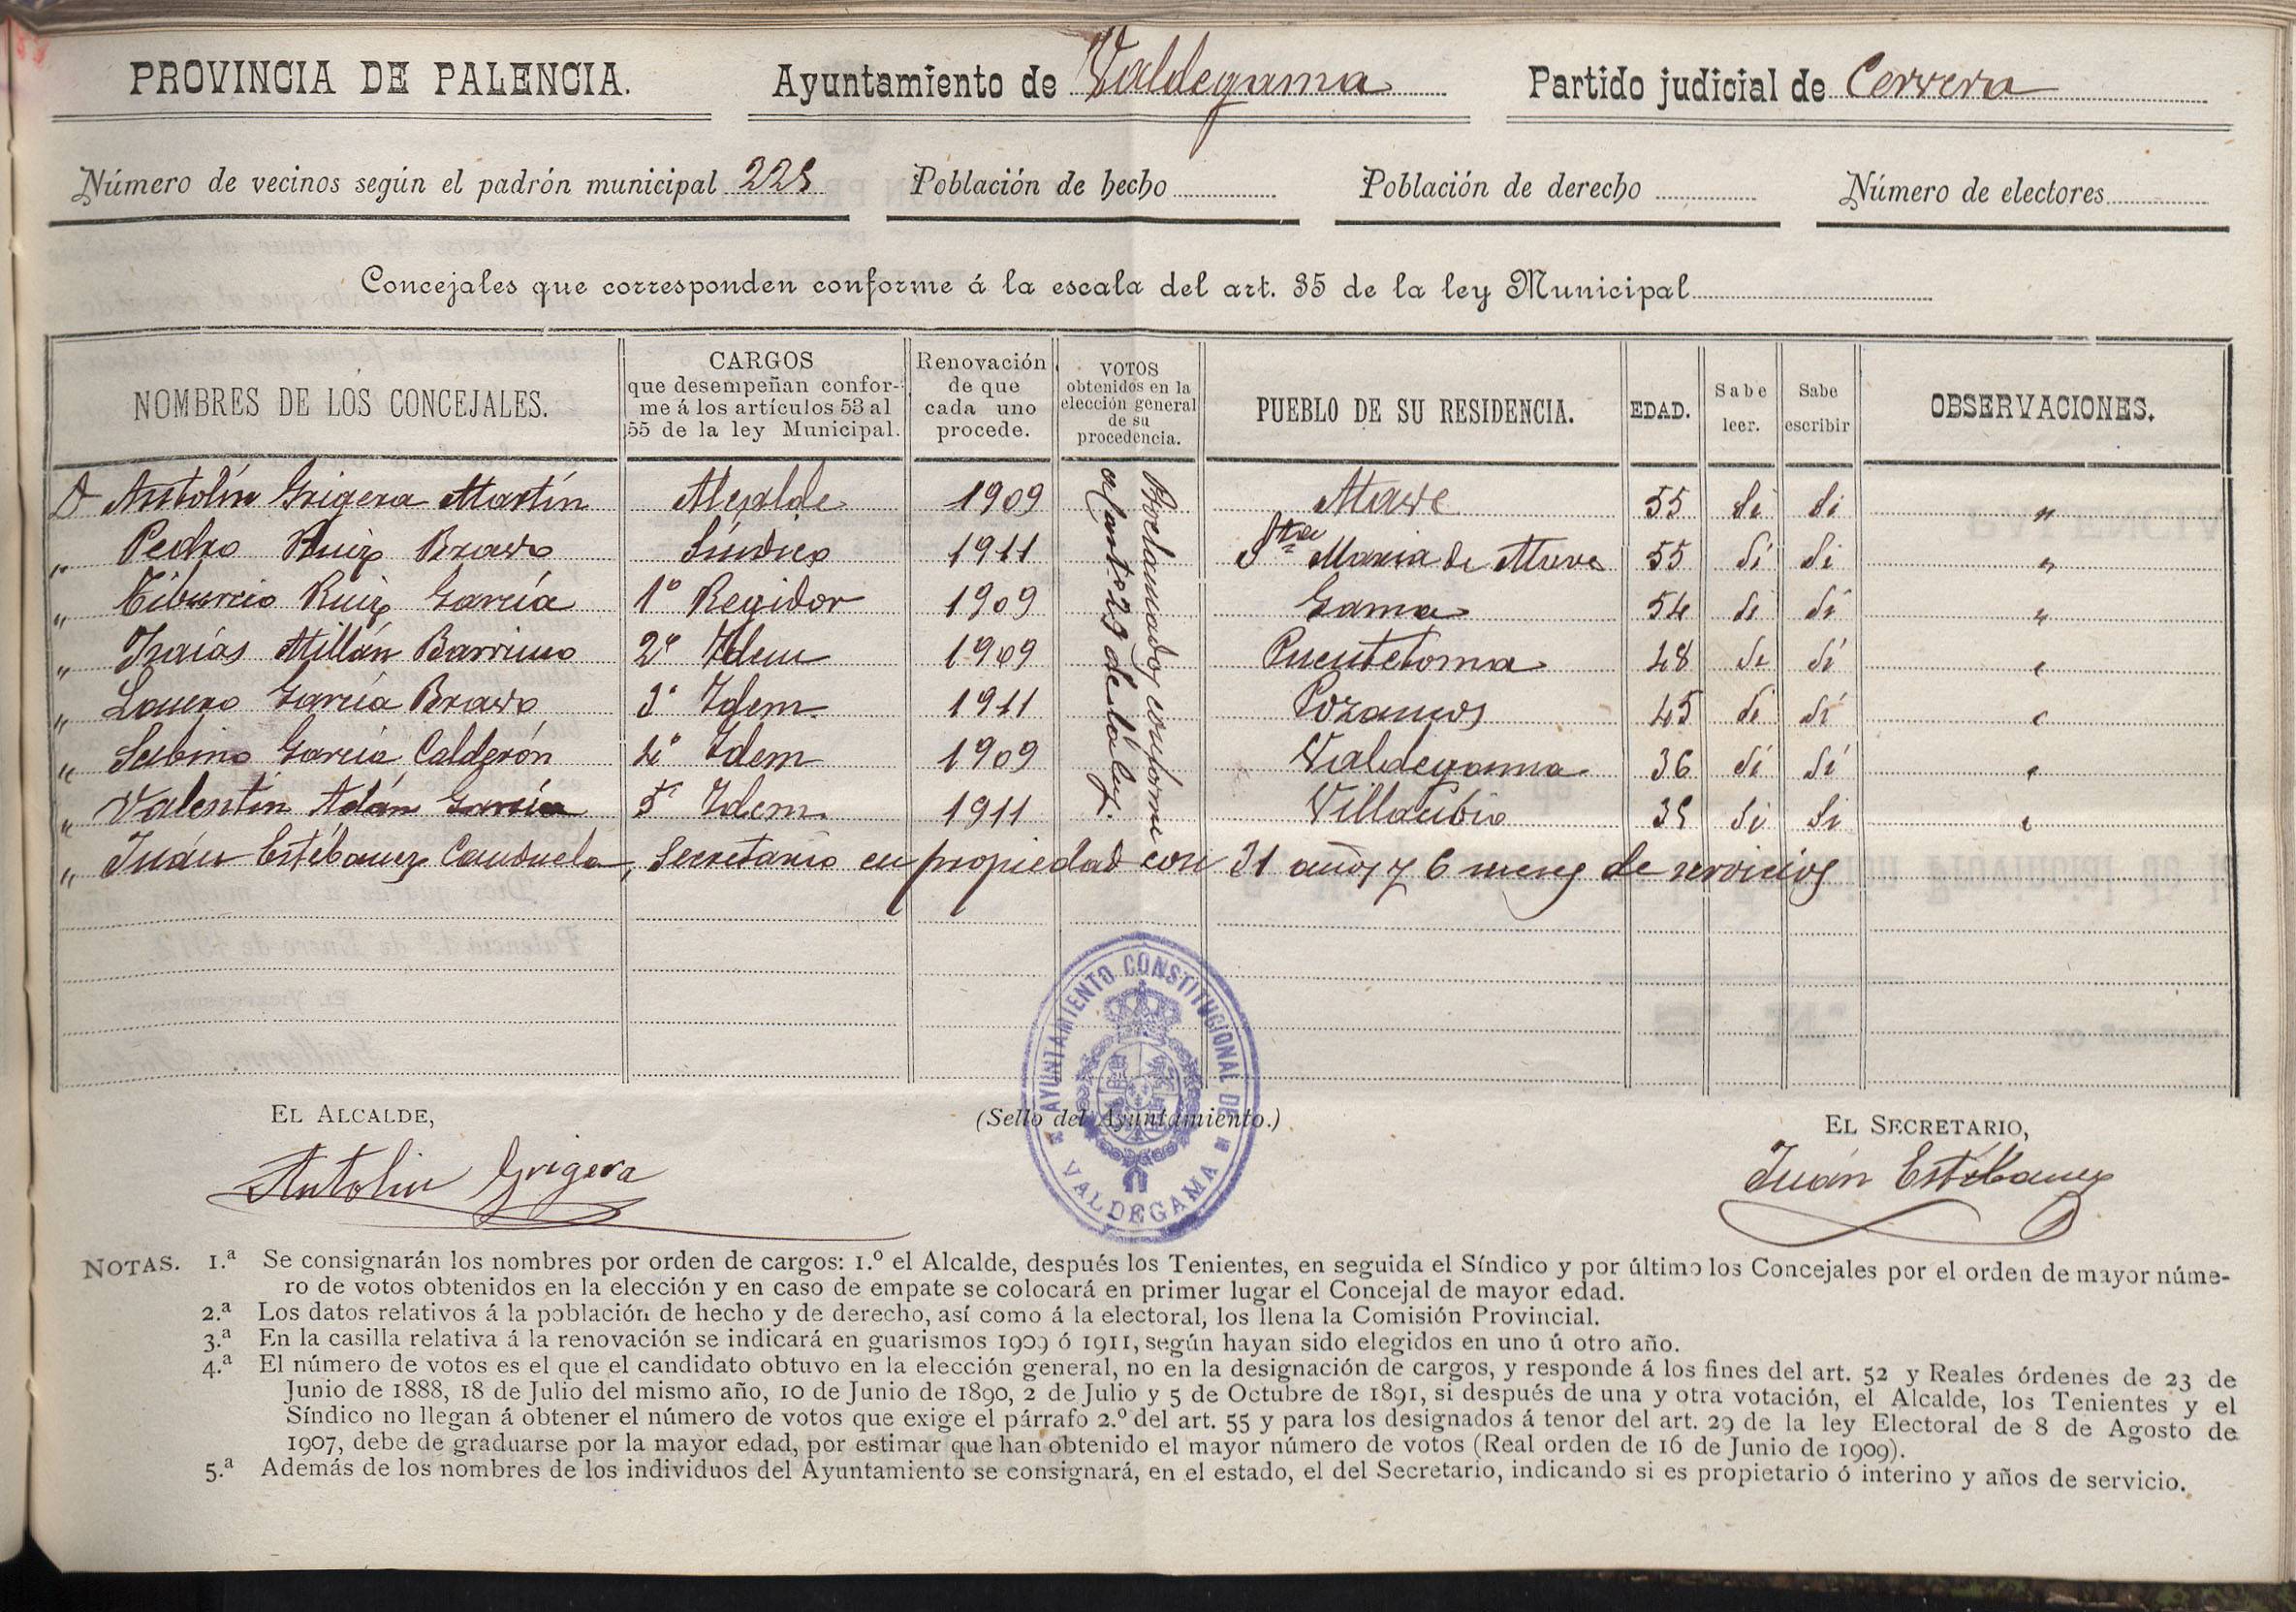 PROVINCIA DE PALENCIA. Ayuntamiento de Valdegama Partido judicial de Cervera
Número de vecinos según el padrón municipal 225 Población de hecho Población de derecho Número de electores
Concejales que corresponden conforme á la escala del art. 35 de la ley Municipal
NOMBRES DE LOS CONCEJALES.
CARGOS
que desempeñan confor-
me á los artículos 53 al
55 de la ley Municipal.
Renovación
de que
cada uno
procede.
VOTOS
obtenidos en la
elección general
de su
procedencia.
PUEBLO DE SU RESIDENCIA.
EDAD.
Sabe
leer.
Sabe
escribir
OBSERVACIONES.
D Antolín Grigera Martín Alcalde 1909 Mave 55 Si Si "
" Pedro Ruiz Bravo Síndico 1911 Sta Maria de Mave 55 Si Si "
" Tiburcio Ruiz García 1º Regidor 1909 Gama 54 Si Si "
" Isaías Millán Barriuso 2º Idem 1909 Puentetoma 48 Si Si "
" García Bravo 3º Idem 1911 Pozancos 45 Si Si "
" Sabino García Calderón 4º Idem 1909 Valdegama 36 Si Si "
" Valentín Adán García 5º Idem. 1911 Villacibio 35 Si Si "
Proclamados conforme
al arto 29 de la ley.
" Juán Estébanez Canduela, Secretario en propiedad con 31 años y 6 meses de servicios
AYUNTAMIENTO CONSTITUCIONAL DE VALDEGAMA
EL ALCALDE, (Sello del Ayuntamiento.) EL SECRETARIO,
Antolin Grigera Juán Estébanez
NOTAS. 1.ª Se consignarán los nombres por orden de cargos: 1.º el Alcalde, después los Tenientes, en seguida el Síndico y por último los Concejales por el orden de mayor núme-
ro de votos obtenidos en la elección y en caso de empate se colocará en primer lugar el Concejal de mayor edad.
2.ª Los datos relativos á la población de hecho y de derecho, así como á la electoral, los llena la Comisión Provincial.
3.ª En la casilla relativa á la renovación se indicará en guarismos 1909 ó 1911, según hayan sido elegidos en uno ú otro año.
4.ª El número de votos es el que el candidato obtuvo en la elección general, no en la designación de cargos, y responde á los fines del art. 52 y Reales órdenes de 23 de
Junio de 1888, 18 de Julio del mismo año, 10 de Junio de 1890, 2 de Julio y 5 de Octubre de 1891, si después de una y otra votación, el Alcalde, los Tenientes y el
Síndico no llegan á obtener el número de votos que exige el párrafo 2.º del art. 55 y para los designados á tenor del art. 29 de la ley Electoral de 8 de Agosto de
1907, debe de graduarse por la mayor edad, por estimar que han obtenido el mayor número de votos (Real orden de 16 de Junio de 1909).
5.ª Además de los nombres de los individuos del Ayuntamiento se consignará, en el estado, el del Secretario, indicando si es propietario ó interino y años de servicio.